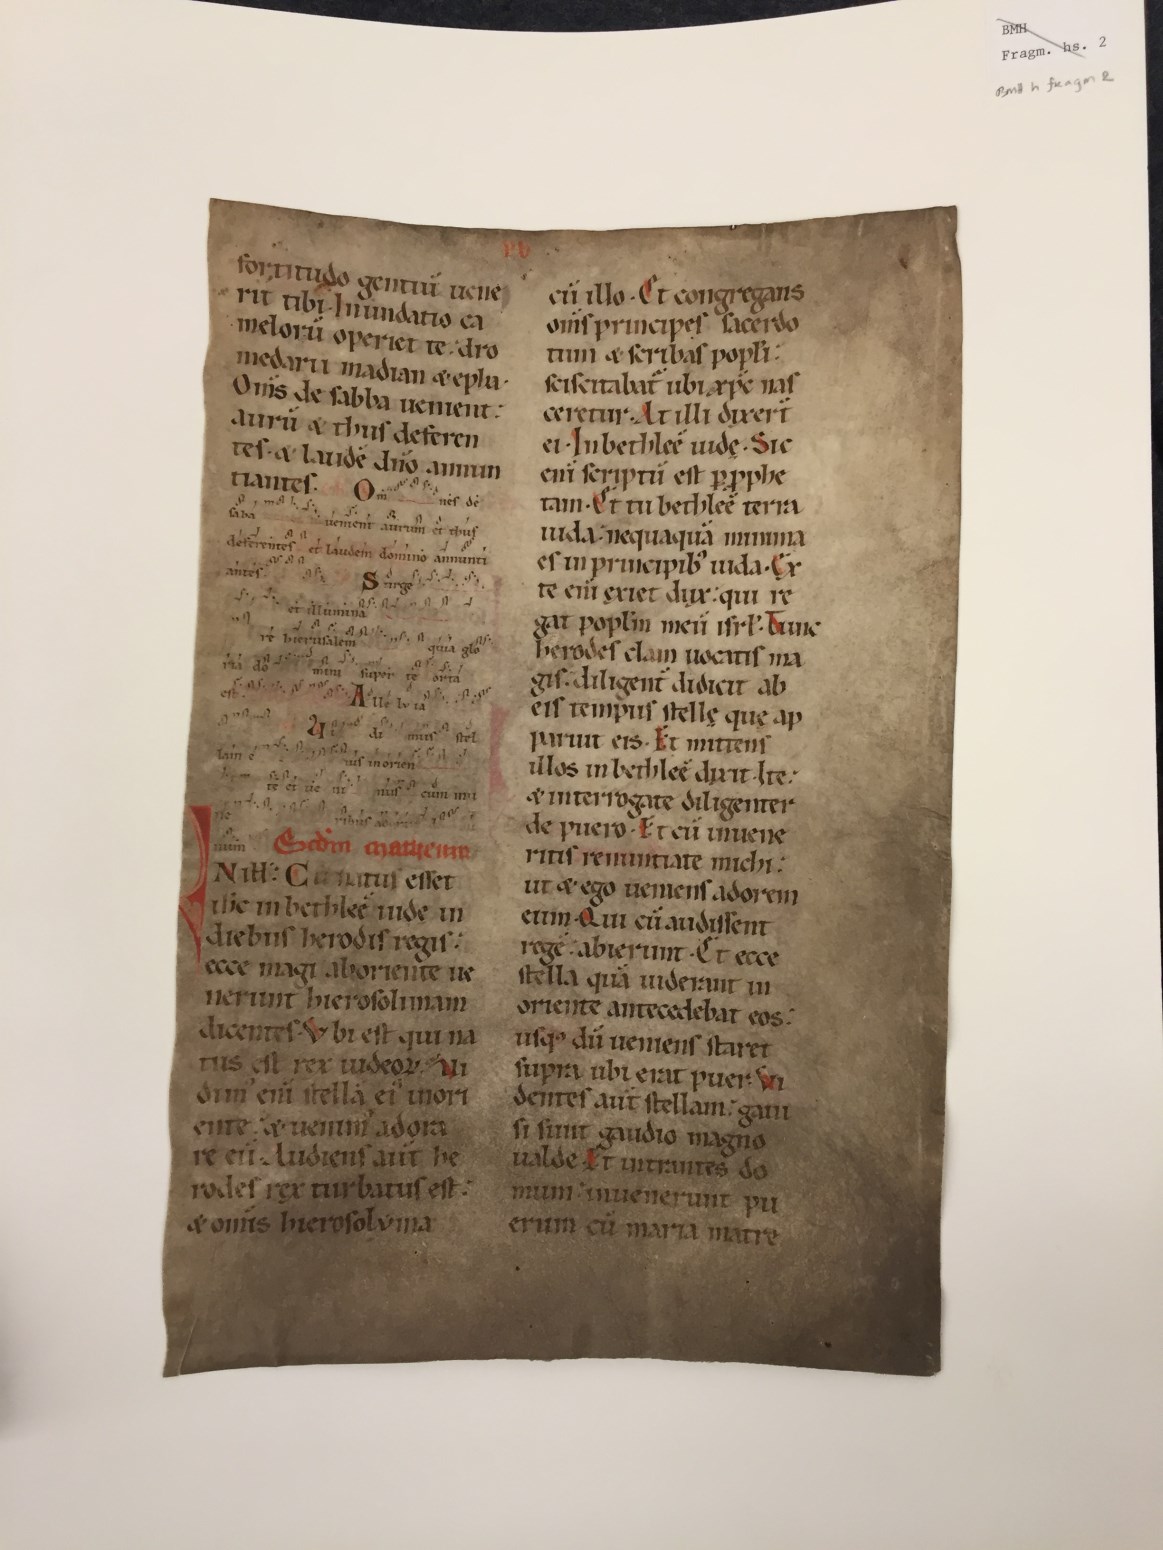 BMH
Fragm. hs. 2
BMH h fragm 2
fortitudo gentiū uene
rit tibi. Inundatio ca
melorū operiet te: dro
medarii madian & epha.
Om̄s de sabba uenient:
aurū & thus deferen
tes. & laudē dn̄o annun
tiantes. Om nes de
saba uenient aurum et thus
deferentes et laudem domino annunti
antes. Surge
et illumina
re hierusalem quia glo
ria do mini super te orta
est. Alleluia
Vi di mus stel
lam e ius in orien
te et ue ni mus cum mu
ne ribus ado
num. Scdm matheum
N illt: Cū natus esset
ih̄c in bethleē iude in
diebus herodis regis:
ecce magi ab oriente ue
nerunt hierosolimam
dicentes. Vbi est qui na
tus est rex iudeoꝝ. Vi
dim' eni stellā ei' in ori
ente: & uenim' adora
re eū. Audiens aut̄ he
rodes rex turbatus est:
& om̄is hierosolyma
cū illo. Et congregans
om̄s principes sacerdo
tum & scribas popli:
sciscitabat̄ ubi xp̄c nas
ceretur. At illi dixert̄
ei. In bethleē iude. Sic
eni scriptū est ꝑ ꝓphe
tam. Et tu bethleē terra
iuda: nequaquā minima
es in principib' iuda. Ex
te eni exiet dux: qui re
gat popl̄m meū isrl̄. Tunc
herodes clam uocatis ma
gis: diligent̄ didicit ab
eis tempus stellę que ap
paruit eis. Et mittens
illos in bethleē dixit. Ite:
& interrogate diligenter
de puero. Et cū inuene
ritis renuntiate michi:
ut & ego ueniens adorem
eum. Qui cū audissent
regē: abierunt. Et ecce
stella quā uiderant in
oriente antecedebat eos:
usq; dū ueniens staret
supra ubi erat puer. Vi
dentes aut̄ stellam: gaui
si sunt gaudio magno
ualde. Et intrantes do
mum: inuenerunt pu
erum cū maria matre